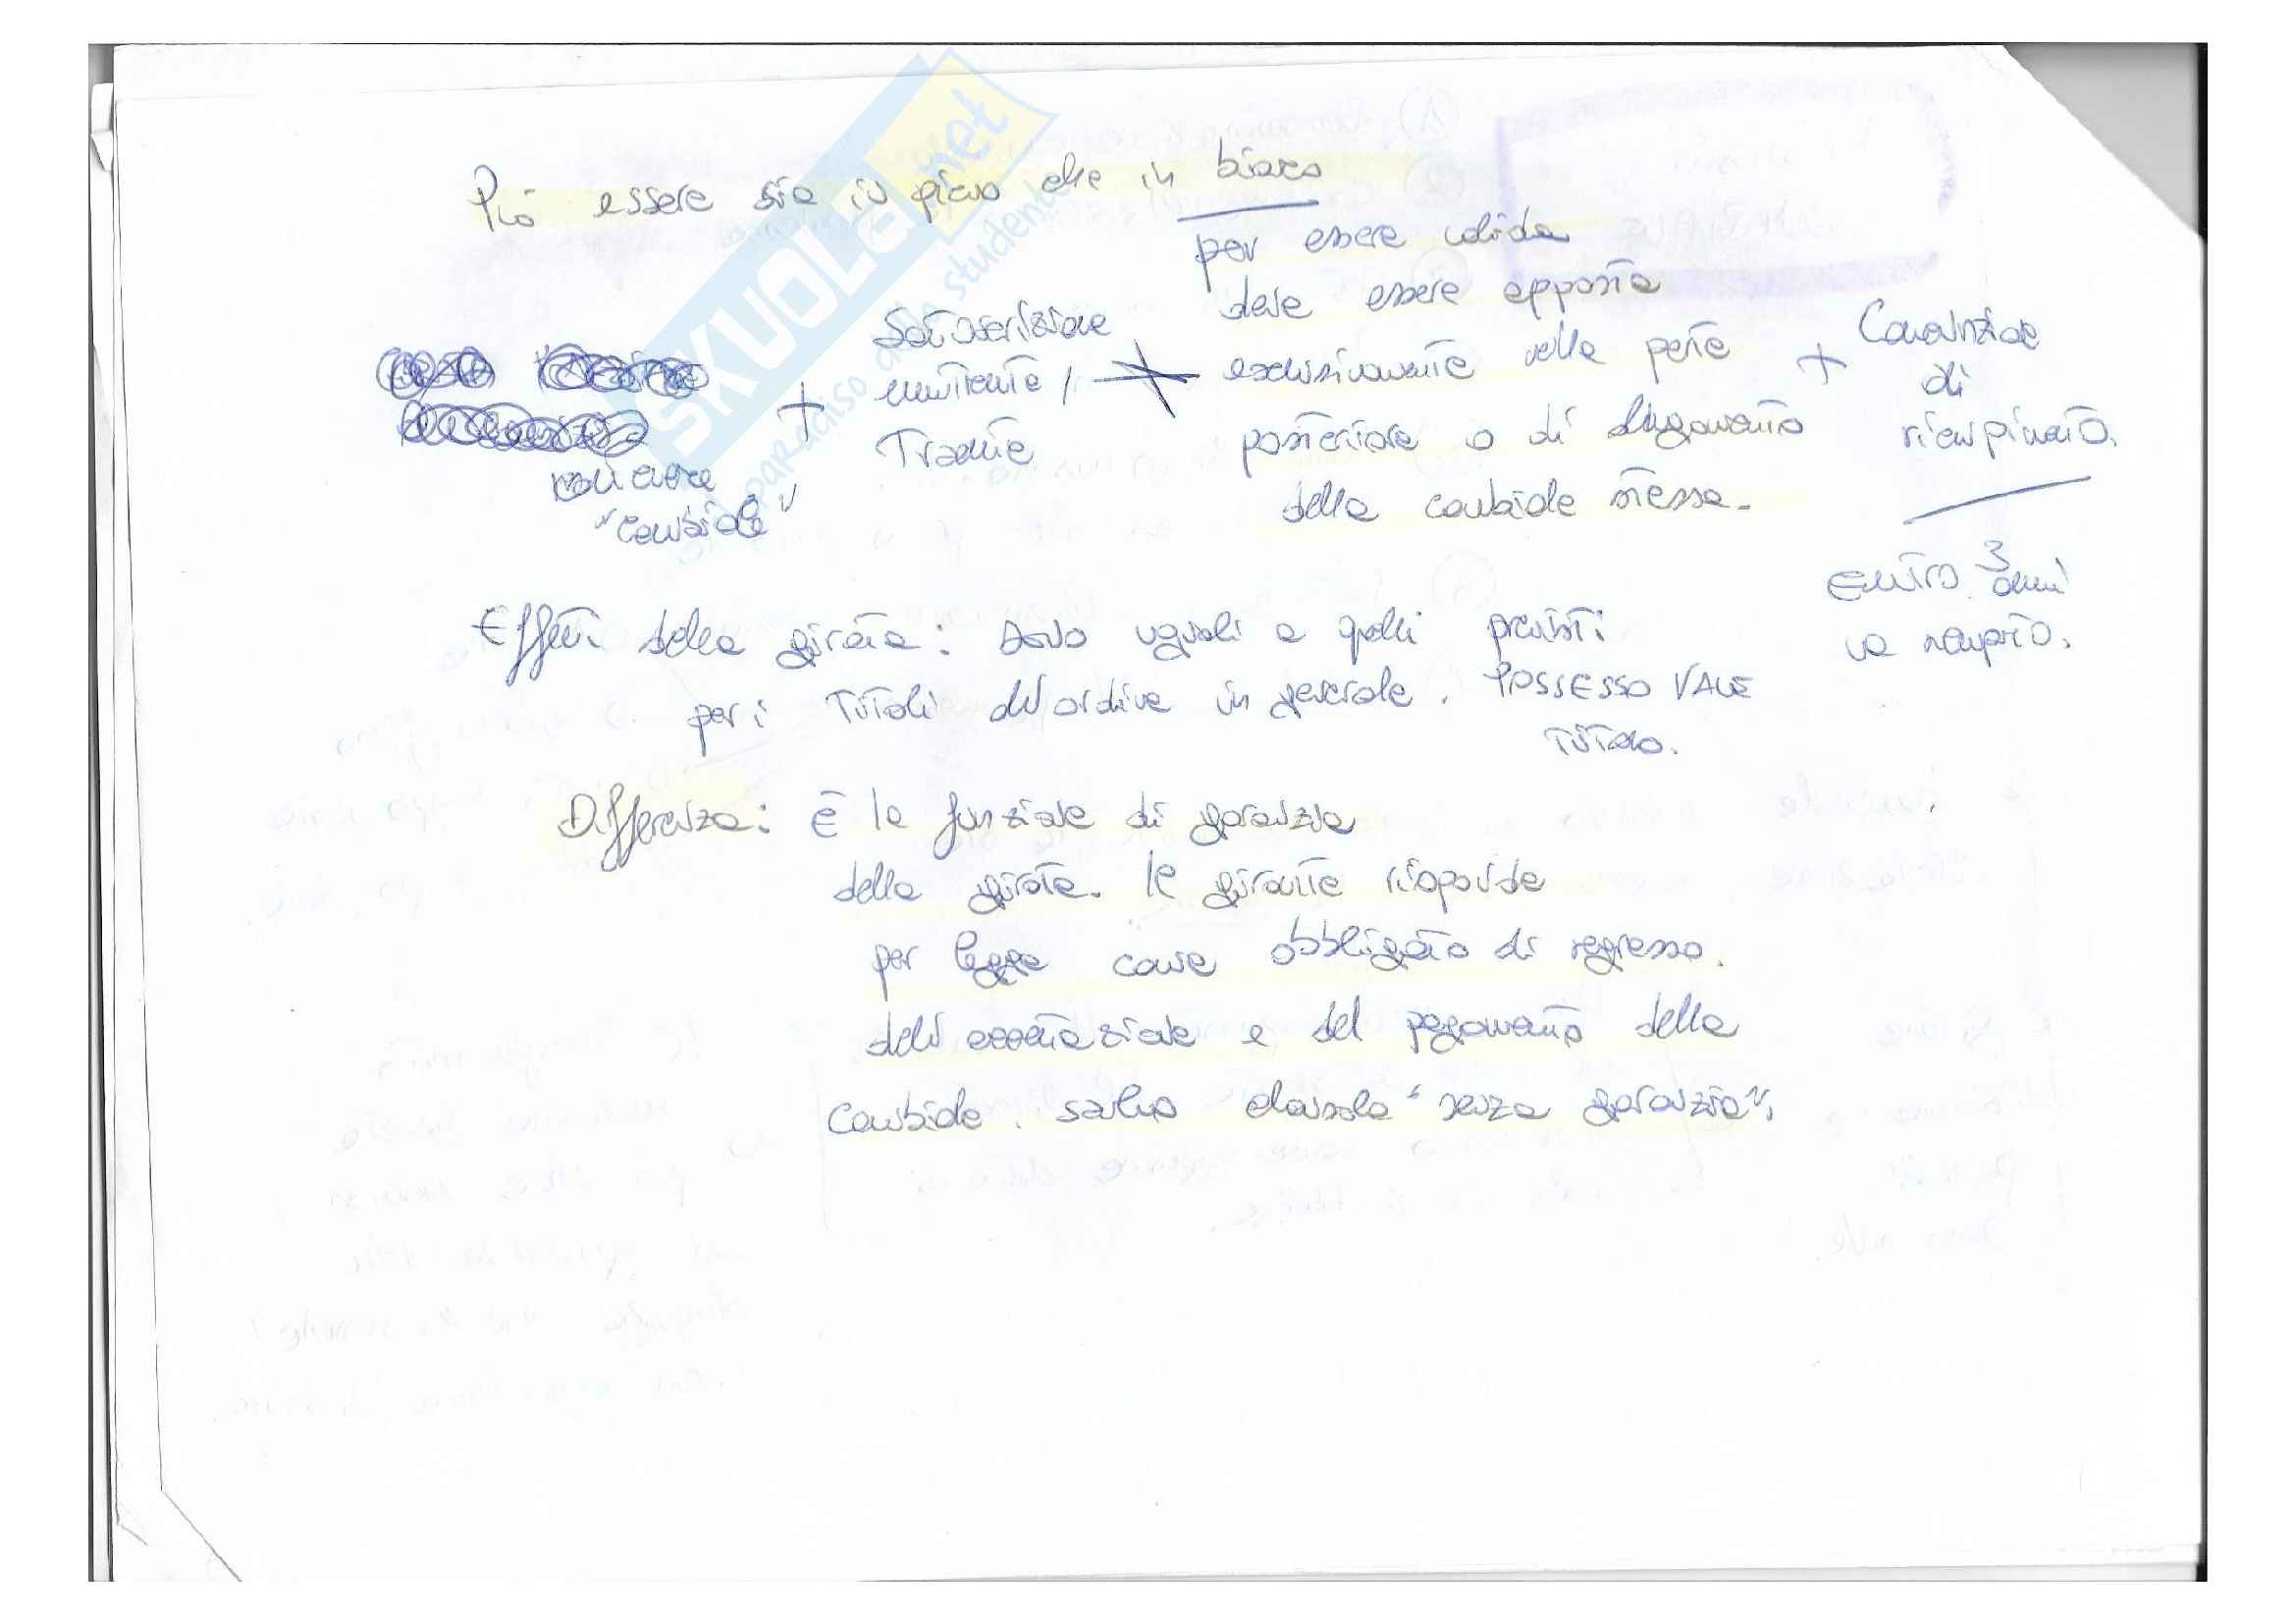 Può essere sia in pieno che in bianco
per essere valida
deve essere apposta
esclusivamente nella parte
posteriore o di allungamento
della cambiale stessa.
+ Sottoscrizione
emittente /
Traente
+ Convenzione
di
riempimento.
entro 3 anni
va riempito.
"cambiale"
Effetti della girata: sono uguali a quelli previsti
per i titoli all'ordine in generale. POSSESSO VALE
TITOLO.
Differenza: è la funzione di garanzia
della girata. Il girante risponde
per legge come obbligato di regresso.
dell'accettazione e del pagamento della
Cambiale. salvo clausola "senza garanzia".
SKUOLA.net
il paradiso dello studente